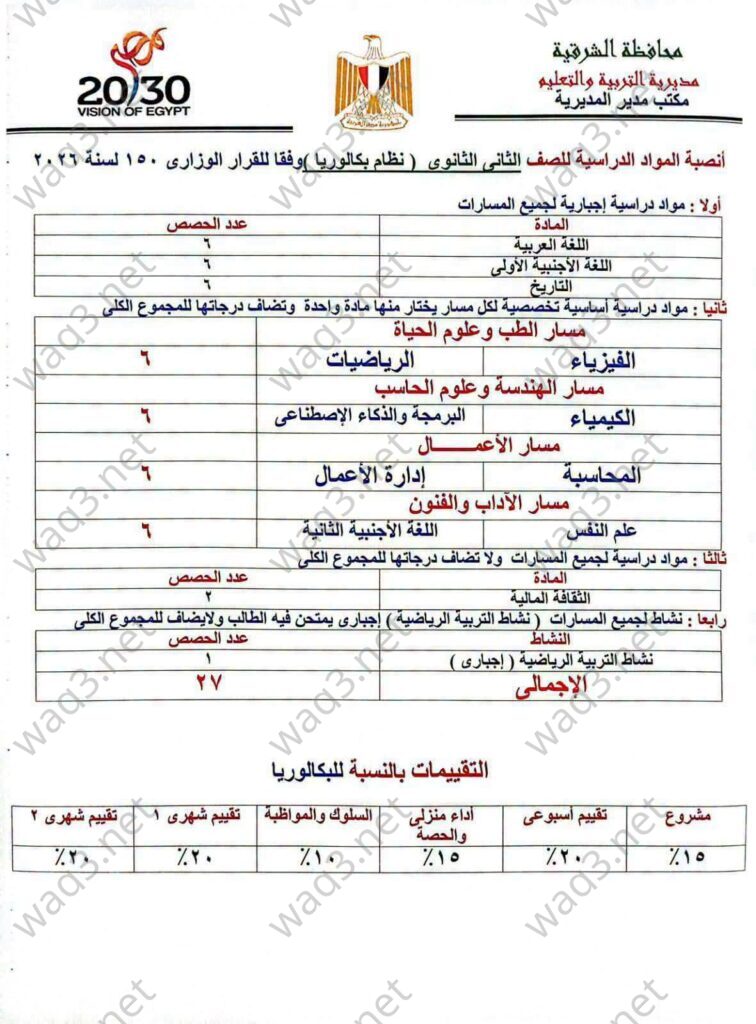 محافظة الشرقية
مديرية التربية والتعليم
مكتب مدير المديرية
2030
VISION OF EGYPT
أنصبة المواد الدراسية للصف الثانى الثانوى ( نظام بكالوريا ) وفقا للقرار الوزارى ١٥٠ لسنة ٢٠٢٦
أولا : مواد دراسية إجبارية لجميع المسارات
المادة عدد الحصص
اللغة العربية ٦
اللغة الأجنبية الأولى ٦
التاريخ ٦
ثانيا : مواد دراسية أساسية تخصصية لكل مسار يختار منها مادة واحدة وتضاف درجاتها للمجموع الكلى
مسار الطب وعلوم الحياة
الفيزياء الرياضيات ٦
مسار الهندسة وعلوم الحاسب
الكيمياء البرمجة والذكاء الإصطناعى ٦
مسار الأعمـــــال
المحاسبة إدارة الأعمال ٦
مسار الآداب والفنون
علم النفس اللغة الأجنبية الثانية ٦
ثالثا : مواد دراسية لجميع المسارات ولا تضاف درجاتها للمجموع الكلى
المادة عدد الحصص
الثقافة المالية ٢
رابعا : نشاط لجميع المسارات ( نشاط التربية الرياضية ) إجبارى يمتحن فيه الطالب ولايضاف للمجموع الكلى
النشاط عدد الحصص
نشاط التربية الرياضية ( إجبارى ) ١
الإجمالى ٢٧
التقييمات بالنسبة للبكالوريا
مشروع تقييم أسبوعى أداء منزلى والحصة السلوك والمواظبة تقييم شهرى ١ تقييم شهرى ٢
١٥٪ ٢٠٪ ١٥٪ ١٠٪ ٢٠٪ ٢٠٪
waq3.net